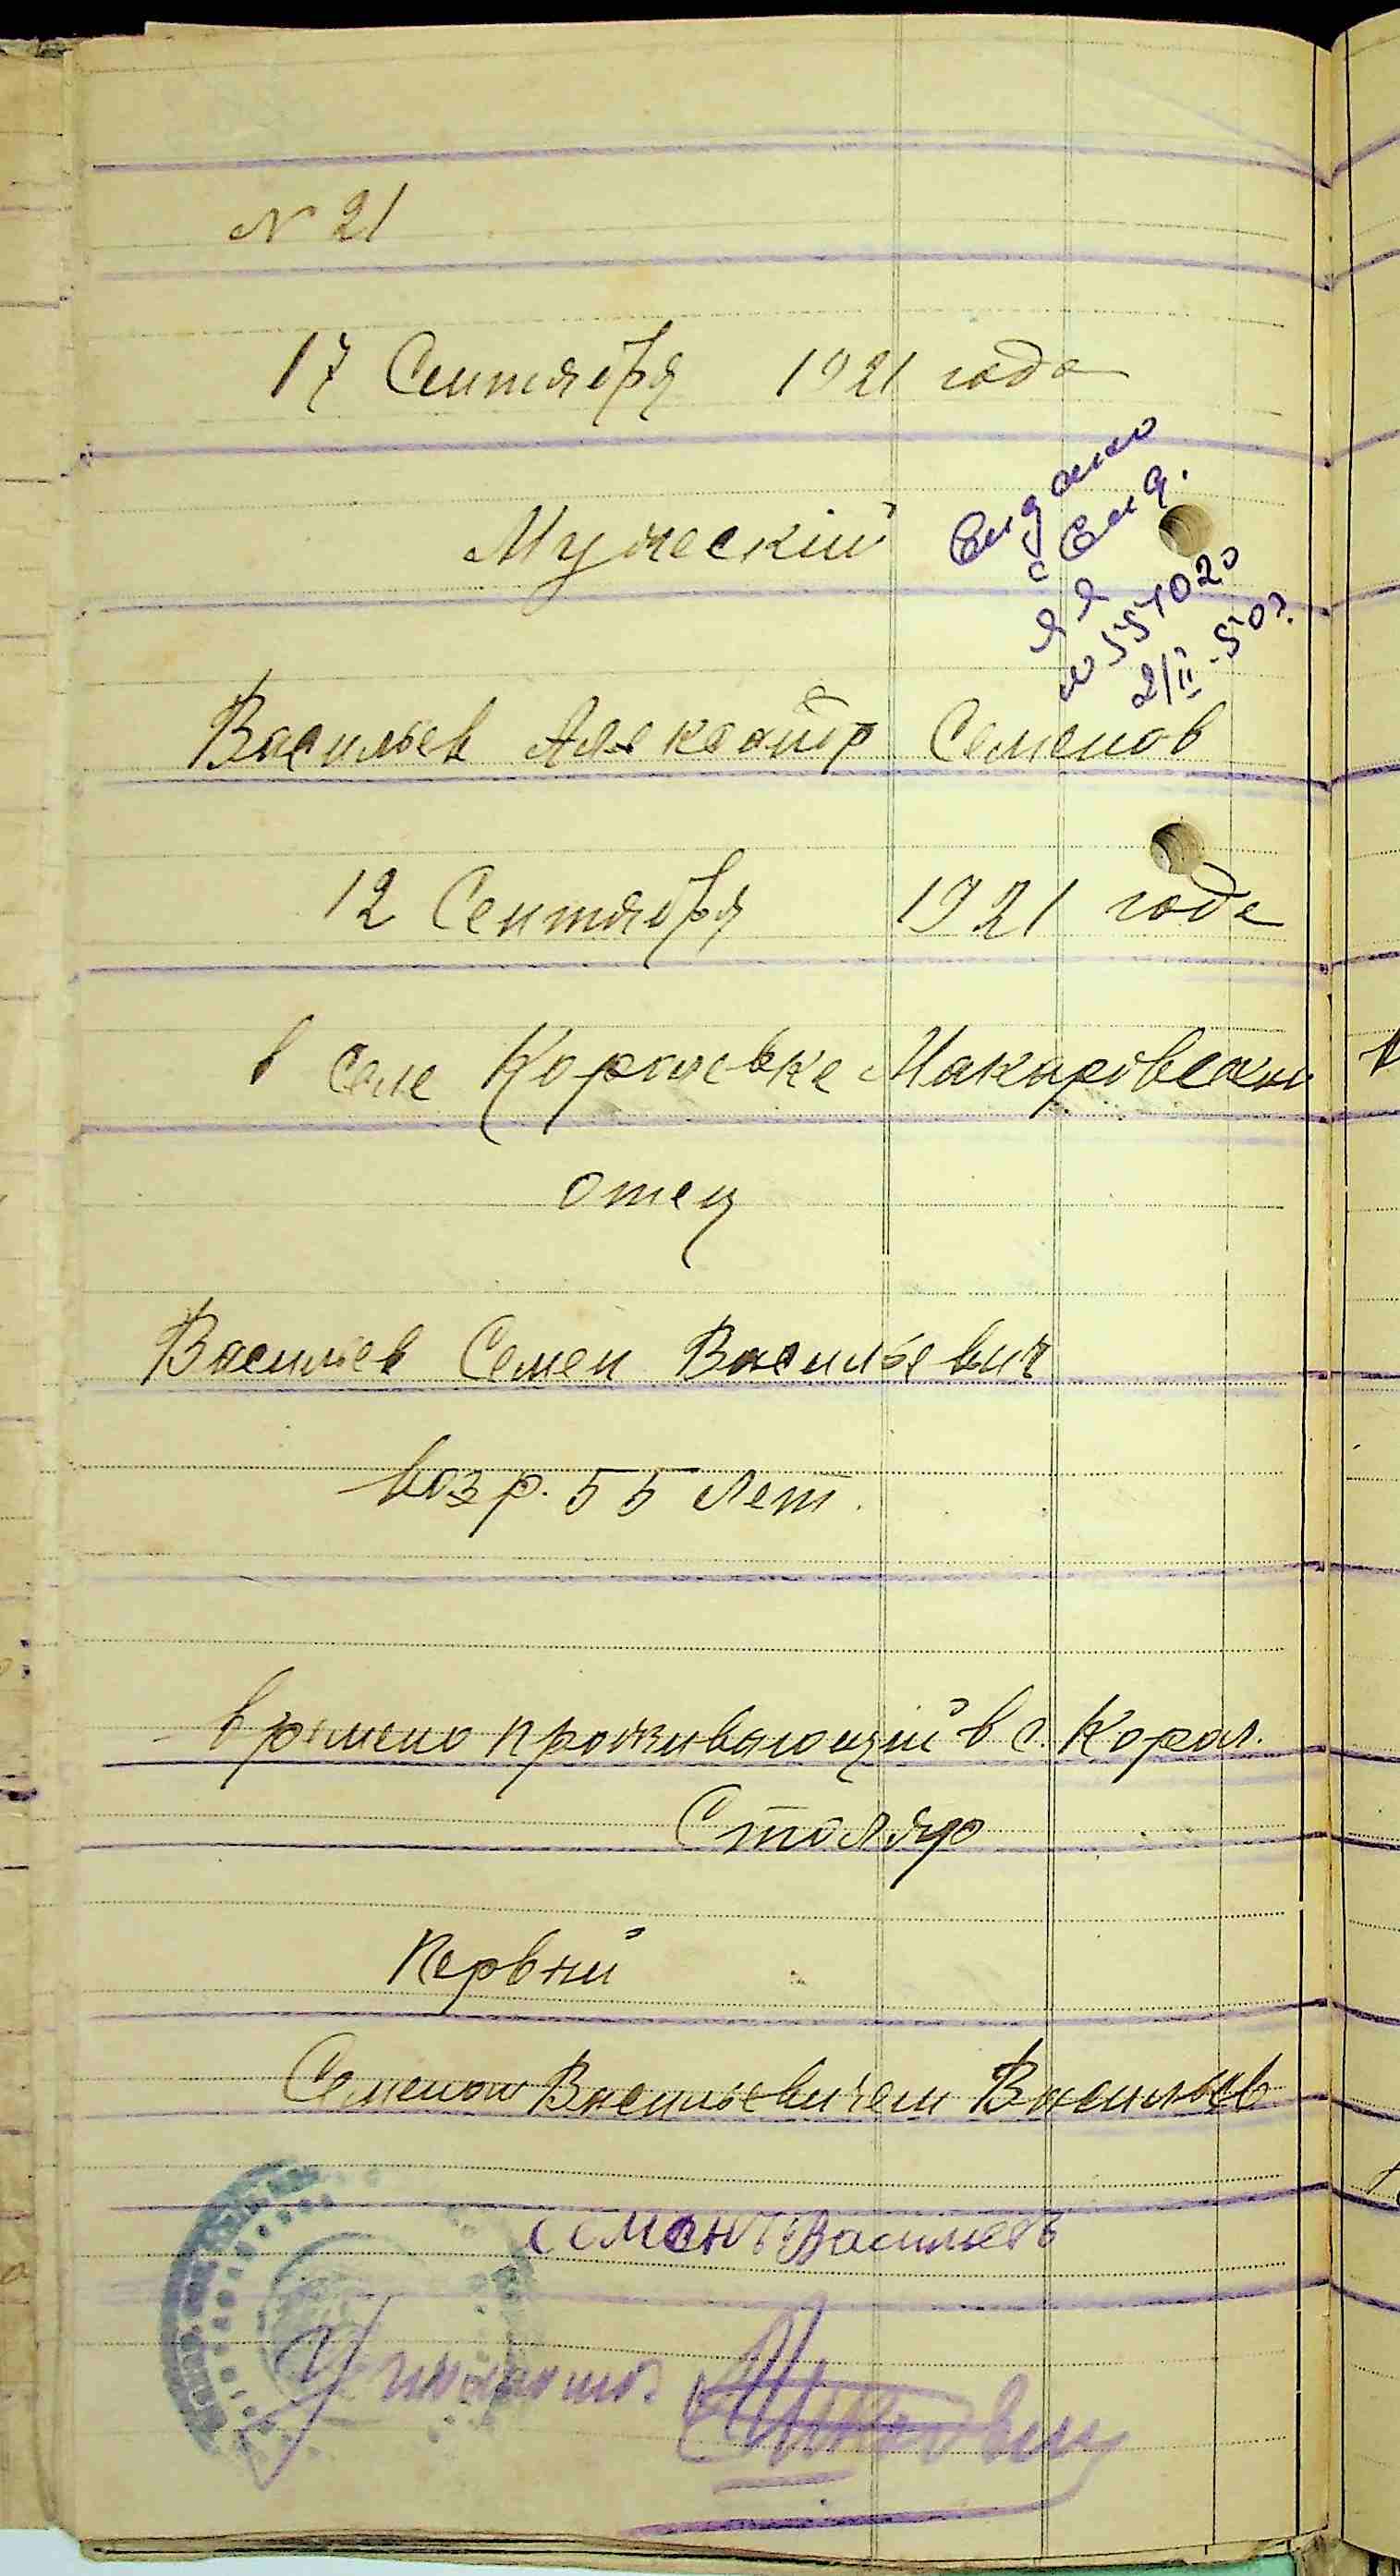 N 21
17 Сентября 1921 года
Мужескій
Выдано
свид.
ЯЯ
№ 551020
2/II-50г.
Васильев Александр Семенов
12 Сентября 1921 года
в селе Королевке Макаровской
отец
Васильев Семен Васильевич
возр. 55 лет.
времено проживающий в с. Корол.
Столяр
Первый
Семеном Васильевичем Васильев
Семенъ Васильевъ